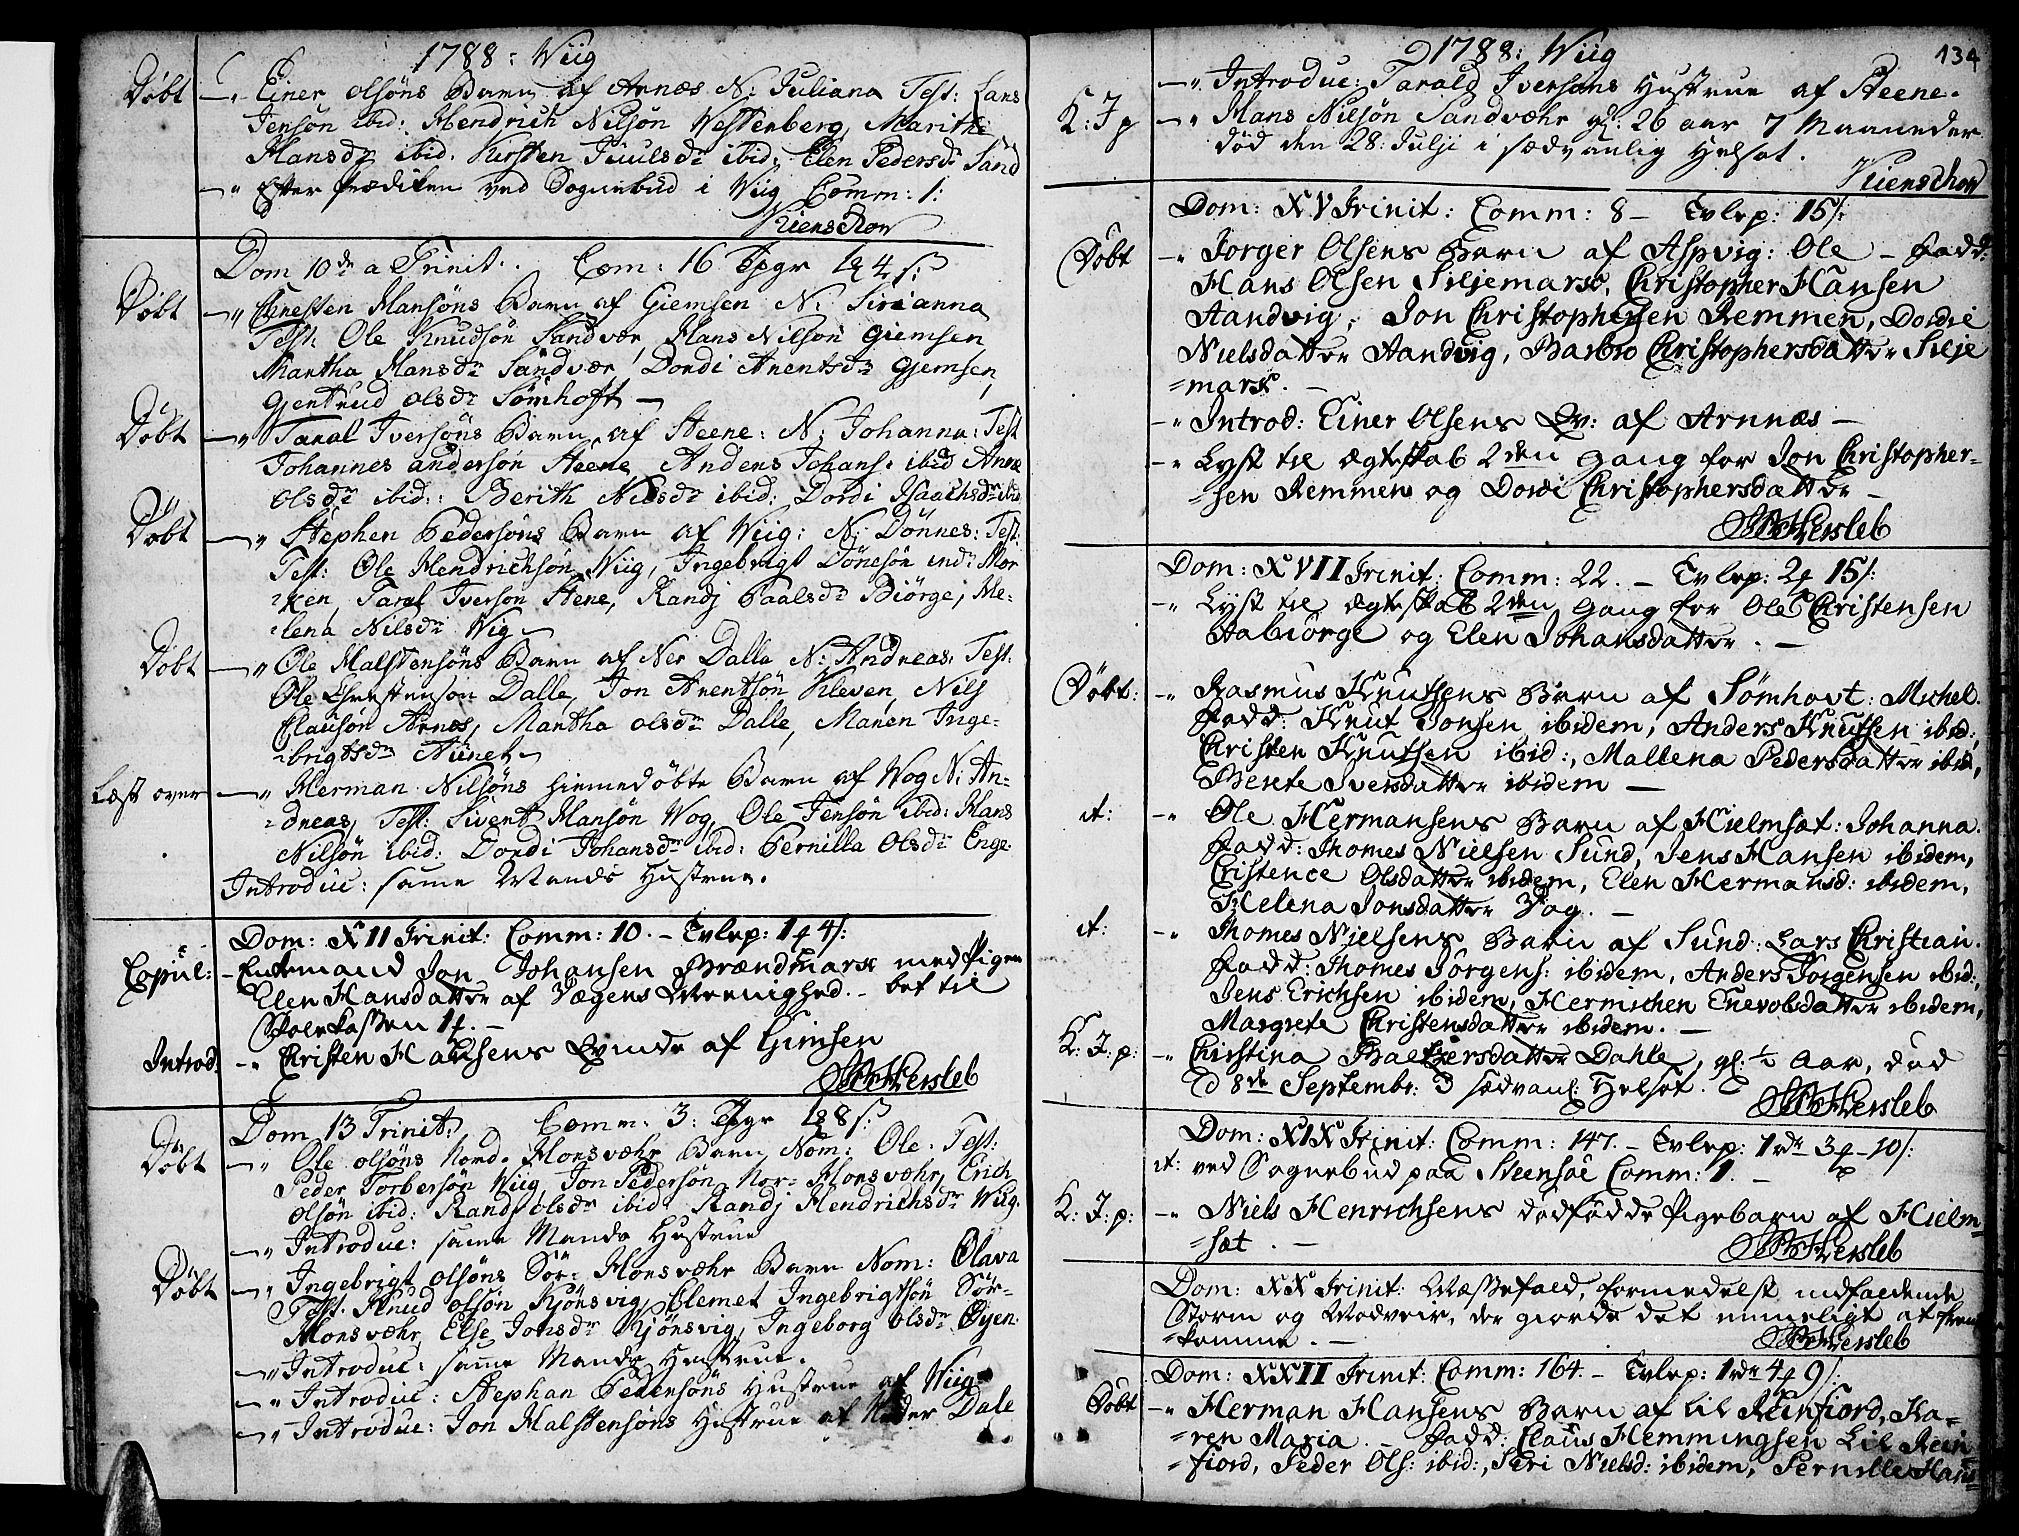 1788: Wiig
Døbt —„ Einer olsöns Barn af Arnæs N: Juliana Test: Lars
Jensön ibid: Hendrich Nilsön Westenberg, Marith
Hansdr ibid. Kirsten Juulsdr ibid: Elen Pedersdr Sand
—„ Efter Prædiken ved Sognebud i Wiig Comm: 1:
Dom 10de a Trinit. Com: 16 16 4 s:
Døbt —„ Christen Hansöns Barn af Giemsen N: Sirianna
Test: Ole Knudsön Sandvær, Hans Nilsön Giemsen
Martha Hansdr Sandvær, Dordi Arentsdr Gjemsen
Gjertrud olsdr Sömhoft —
Døbt —„ Taral Iversöns Barn af Steene: N: Johanna: Test
Johannes andersön Steene, Anders Johans: ibid Anne
olsdr ibid: Berith Nilsdr ibid: Dordi Isaachsdr ibid
Døbt —„ Stephen Pedersöns Barn af Wiig: N: Dönnes: Test:
Test: Ole Hendrichsön Wiig, Ingebrigt Dönesön
Taral Iverson Stene, Randj Paalsdr Biörge, He-
lena Nilsdr Wig
Døbt —„ Ole Halstensöns Barn af Ner Dalla N: Andreas. Test:
Ole Chrestenson Dalle, Jon Arentsön Kleven, Nils
Clausön Arnes, Martha olsdr Dalle, Maren Inge-
brigtsdr
Læst over —„ Herman Nilsöns hiemmedöbte Barn af Wog N: An-
dreas, Test: Sivert Hansön Wog, Ole Jensön ibid: Hans
Nilsön ibid: Dordi Johansdr ibid: Pernilla Olsdr Enge
Introduc: same Mands Hustrue.
Dom: XII Trinit: Comm: 10. — Tvlep: 1 4 s:
Copul: - Enkemand Jon Johansen Brændmark med Pigen
Elen Hansdatter af Vægens Meenighed. — bet til
Skolekassen 1
Introd. —„ Christen Hansens Qvinde af Gimsen
Hersleb
Dom 13 Trinit: Comm: 3: 8 s:
Døbt —„ Ole olsöns Nord-Horsvæhr Barn Nom: Ole. Test:
Peder Torbersön Wiig Jon Pedersön Nor-Horsvæhr, Erich
olsön ibid: Randj olsdr ibid Randj Hendrichsdr Wiig.
—„ Introduc: same Mands Hustrue
Døbt —„ Ingebrigt olsöns Sör-Horsvæhr Barn Nom: Olava
Test. Knud olsön Kjönsvig, Clemet Ingebrigtsön Sör-
Horsvæhr, Else Jonsdr Kjönsvig, Ingeborg olsdr Øyen
—„ Introduc: same Mands Hustrue.
—„ Introduc: Stephan Pedersöns Hustrue af Wiig
—„ Introduc: Jon Halstensöns Hustrue af Neder Dale
1788: Wiig 134
—„ Introduc: Tarald Iversöns Hustrue af Steene.
K: J p —„ Hans Nilsön Sandvæhr gl: 26 aar 7 Maaneder
død den 28: Julji i sædvanlig Helsot.
Dom: XV Trinit: Comm: 8 — Tvlep: 15 s:
Døbt —„ Jorger Olsens Barn af Aspvig: Ole — Fadd:
Hans Olsen Siljemark, Christopher Hansen
Aandvig, Jon Christophersen Remmen, Dordie
Nielsdatter Aandvig, Barbro Christophersdatter Silje
=mark. —
—„ Introd: Einer Olsens Qv: af Arnnæs —
—„ Lyst til Ægteskab 2den Gang for Jon Christopher-
=sen Remmen og Dordi Christophersdatter —
Hersleb
Dom: XVII Trinit: Comm: 22. — Tvlep: 2 15 s:
—„ Lyst til Ægteskab 2den Gang for Ole Christensen
Aabiörge og Elen Johansdatter. —
Døbt: —„ Rasmus Knutsens Barn af Sömhovt: Michel.
Fadd: Knut Jonsen ibidem, Anders Knutsen ibid:,
Christen Knutsen ibid:, Mallena Pedersdatter ibid,
Berete Iversdatter ibidem —
it: —„ Ole Hermansens Barn af Hielmsæt: Johanna.
Fadd: Thomes Nielsen Sund, Jens Hansen ibidem,
Cristence Olsdatter ibidem, Elen Hermansd: ibidem,
Helena Jonsdatter Vog. —
it: —„ Thomes Nielsens Barn af Sund: Lars Christian.
Fadd: Thomes Jörgens: ibidem, Anders Jörgensen ibid:,
Jens Erichsen ibidem, Hermichen Enevolsdatter ibidem,
Margrete Christensdatter ibidem. —
K: J: p: —„ Christina Baltzersdatter Dahle, gl: ½ Aar, död
d 8de Septembr: i sædvanl: Helsot.
Hersleb
Dom: XIX Trinit: Comm: 147. — Tvlep: 1 rdr 3 — 10 s:
it: ved Sognebud paa Steensöe Comm: 1. —
K: J: p: —„ Niels Henrichsens dödfödde Pigebarn af Hielm-
=sæt. —
Hersleb
Dom: XX Trinit: Messefald, formedelst indfaldende
Storm og Modveir, der giorde det umueligt at frem-
=komme. —
Hersleb
Dom: XXII Trinit: Comm: 164. — Tvlep: 1 rdr 4 9 s:
Døbt —„ Herman Hansens Barn af Lil Reinfiord, Ka-
=ren Maria. — Fadd: Claus Hemmingsen Lil Rein
=fiord, Peder Ols: ibid:, Siri Nielsd: ibidem, Pernille Hans-